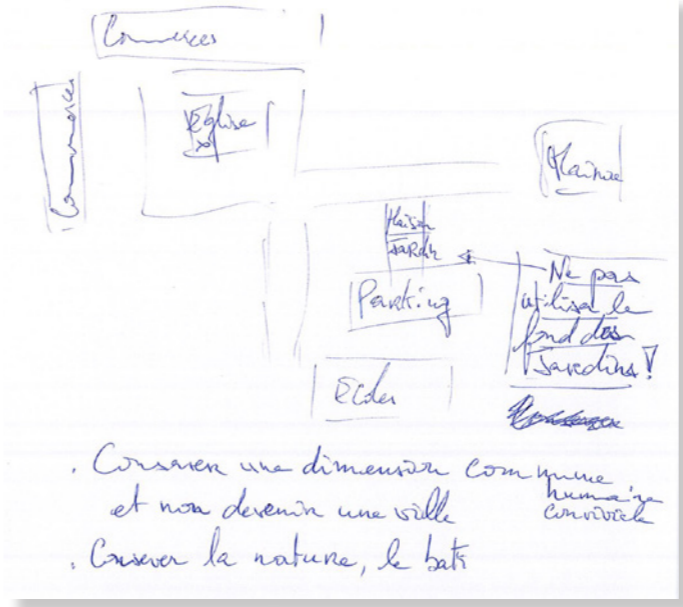 Commerces
Commerces
Eglise
Mairie
Maison
Jardin
Parking
Ne pas
utiliser le
fond des
Jardins !
Ecoles
. Conserver une dimension commune
humaine
et non devenir une ville
conviviale
. Conserver la nature, le bati